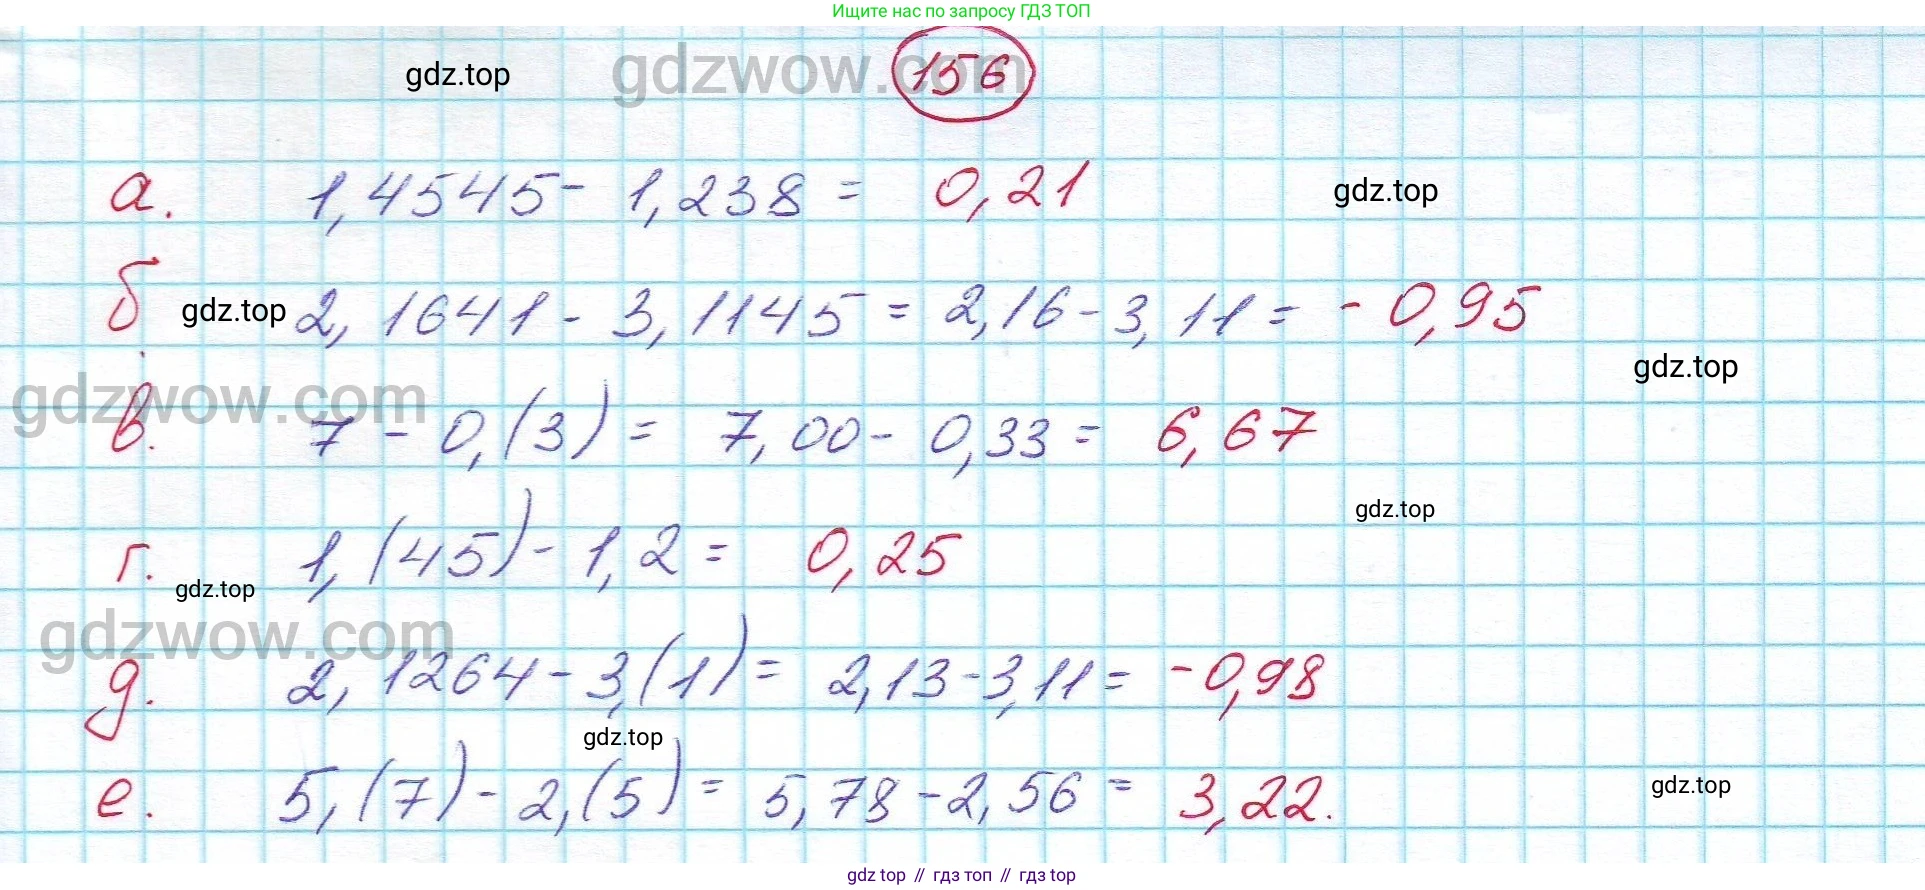 Ищите нас по запросу ГДЗ ТОП
gdz.top gdzwow.com 156
а. 1,4545 - 1,238 = 0,21 gdz.top
б. gdz.top 2,1641 - 3,1145 = 2,16 - 3,11 = - 0,95
gdz.top
gdzwow.com
в. 7 - 0,(3) = 7,00 - 0,33 = 6,67
gdz.top
г. 1,(45) - 1,2 = 0,25
gdz.top
gdzwow.com
д. 2,1264 - 3,(1) = 2,13 - 3,11 = -0,98
gdz.top
е. 5,(7) - 2,(5) = 5,78 - 2,56 = 3,22.
gdz.top
gdz top // гдз топ // гдз top